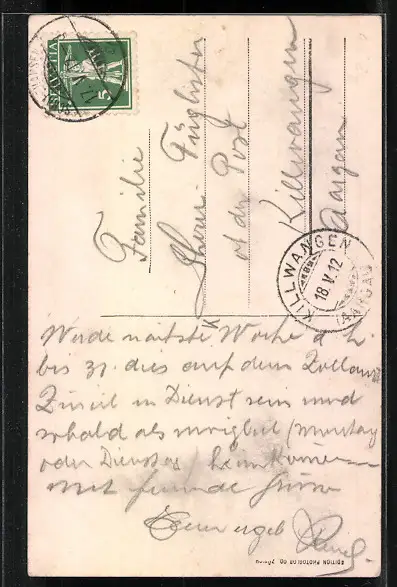 Familie
Füglister
Post
Killwangen
Aargau
HELVETIA
5
KILLWANGEN
18.V.12
(AARGAU)
Werde nächste Woche d. h.
bis 31. dies auf dem Zollamt
Zürich in Dienst sein und
sobald als möglich (Montag
oder Dienstag) heimkommen
Mit freundl. Grüsse
Euer ergeb.
EDITION PHOTOGLOB CO. ZÜRICH